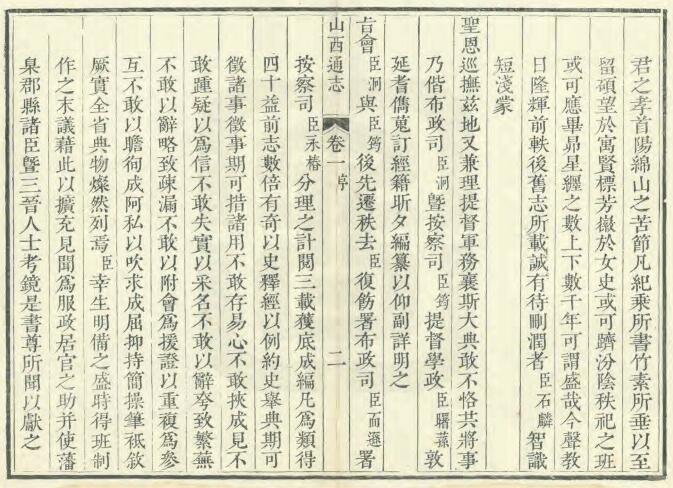 君之孝首陽綿山之苦節凡紀乘所書竹素所垂以至
留碩望於寓賢標芳徽於女史或可躋汾陰秩祀之班
或可應畢昴星纏之數上下數千年可謂盛哉今聲教
日隆輝前軼後舊志所載誠有待刪潤者臣石麟智識
短淺蒙
聖恩巡撫茲地又兼理提督軍務襄斯大典敢不恪共將事
乃偕布政司臣泂暨按察司臣筠提督學政臣曙蓀敦
延耆儁蒐訂經籍昕夕編纂以仰副詳明之
旨會臣泂與臣筠後先遷秩去臣復飭署布政司臣而遜署
山西通志 卷一 序 二
按察司臣永椿分理之計閱三載獲底成編凡為類得
四十益前志數倍有奇以史釋經以例約史舉典期可
徵諸事徵事期可措諸用不敢存易心不敢挾成見不
敢踵疑以為信不敢失實以采名不敢以辭夸致繁蕪
不敢以辭略致疎漏不敢以附會為援證以重複為參
互不敢以瞻徇成阿私以吹求成屈抑持簡操筆祗敘
厥實全省典物燦然列焉臣幸生明備之盛時得班制
作之末議藉此以擴充見聞為服政居官之助并使藩
臬郡縣諸臣暨三晉人士考鏡是書尊所聞以獻之